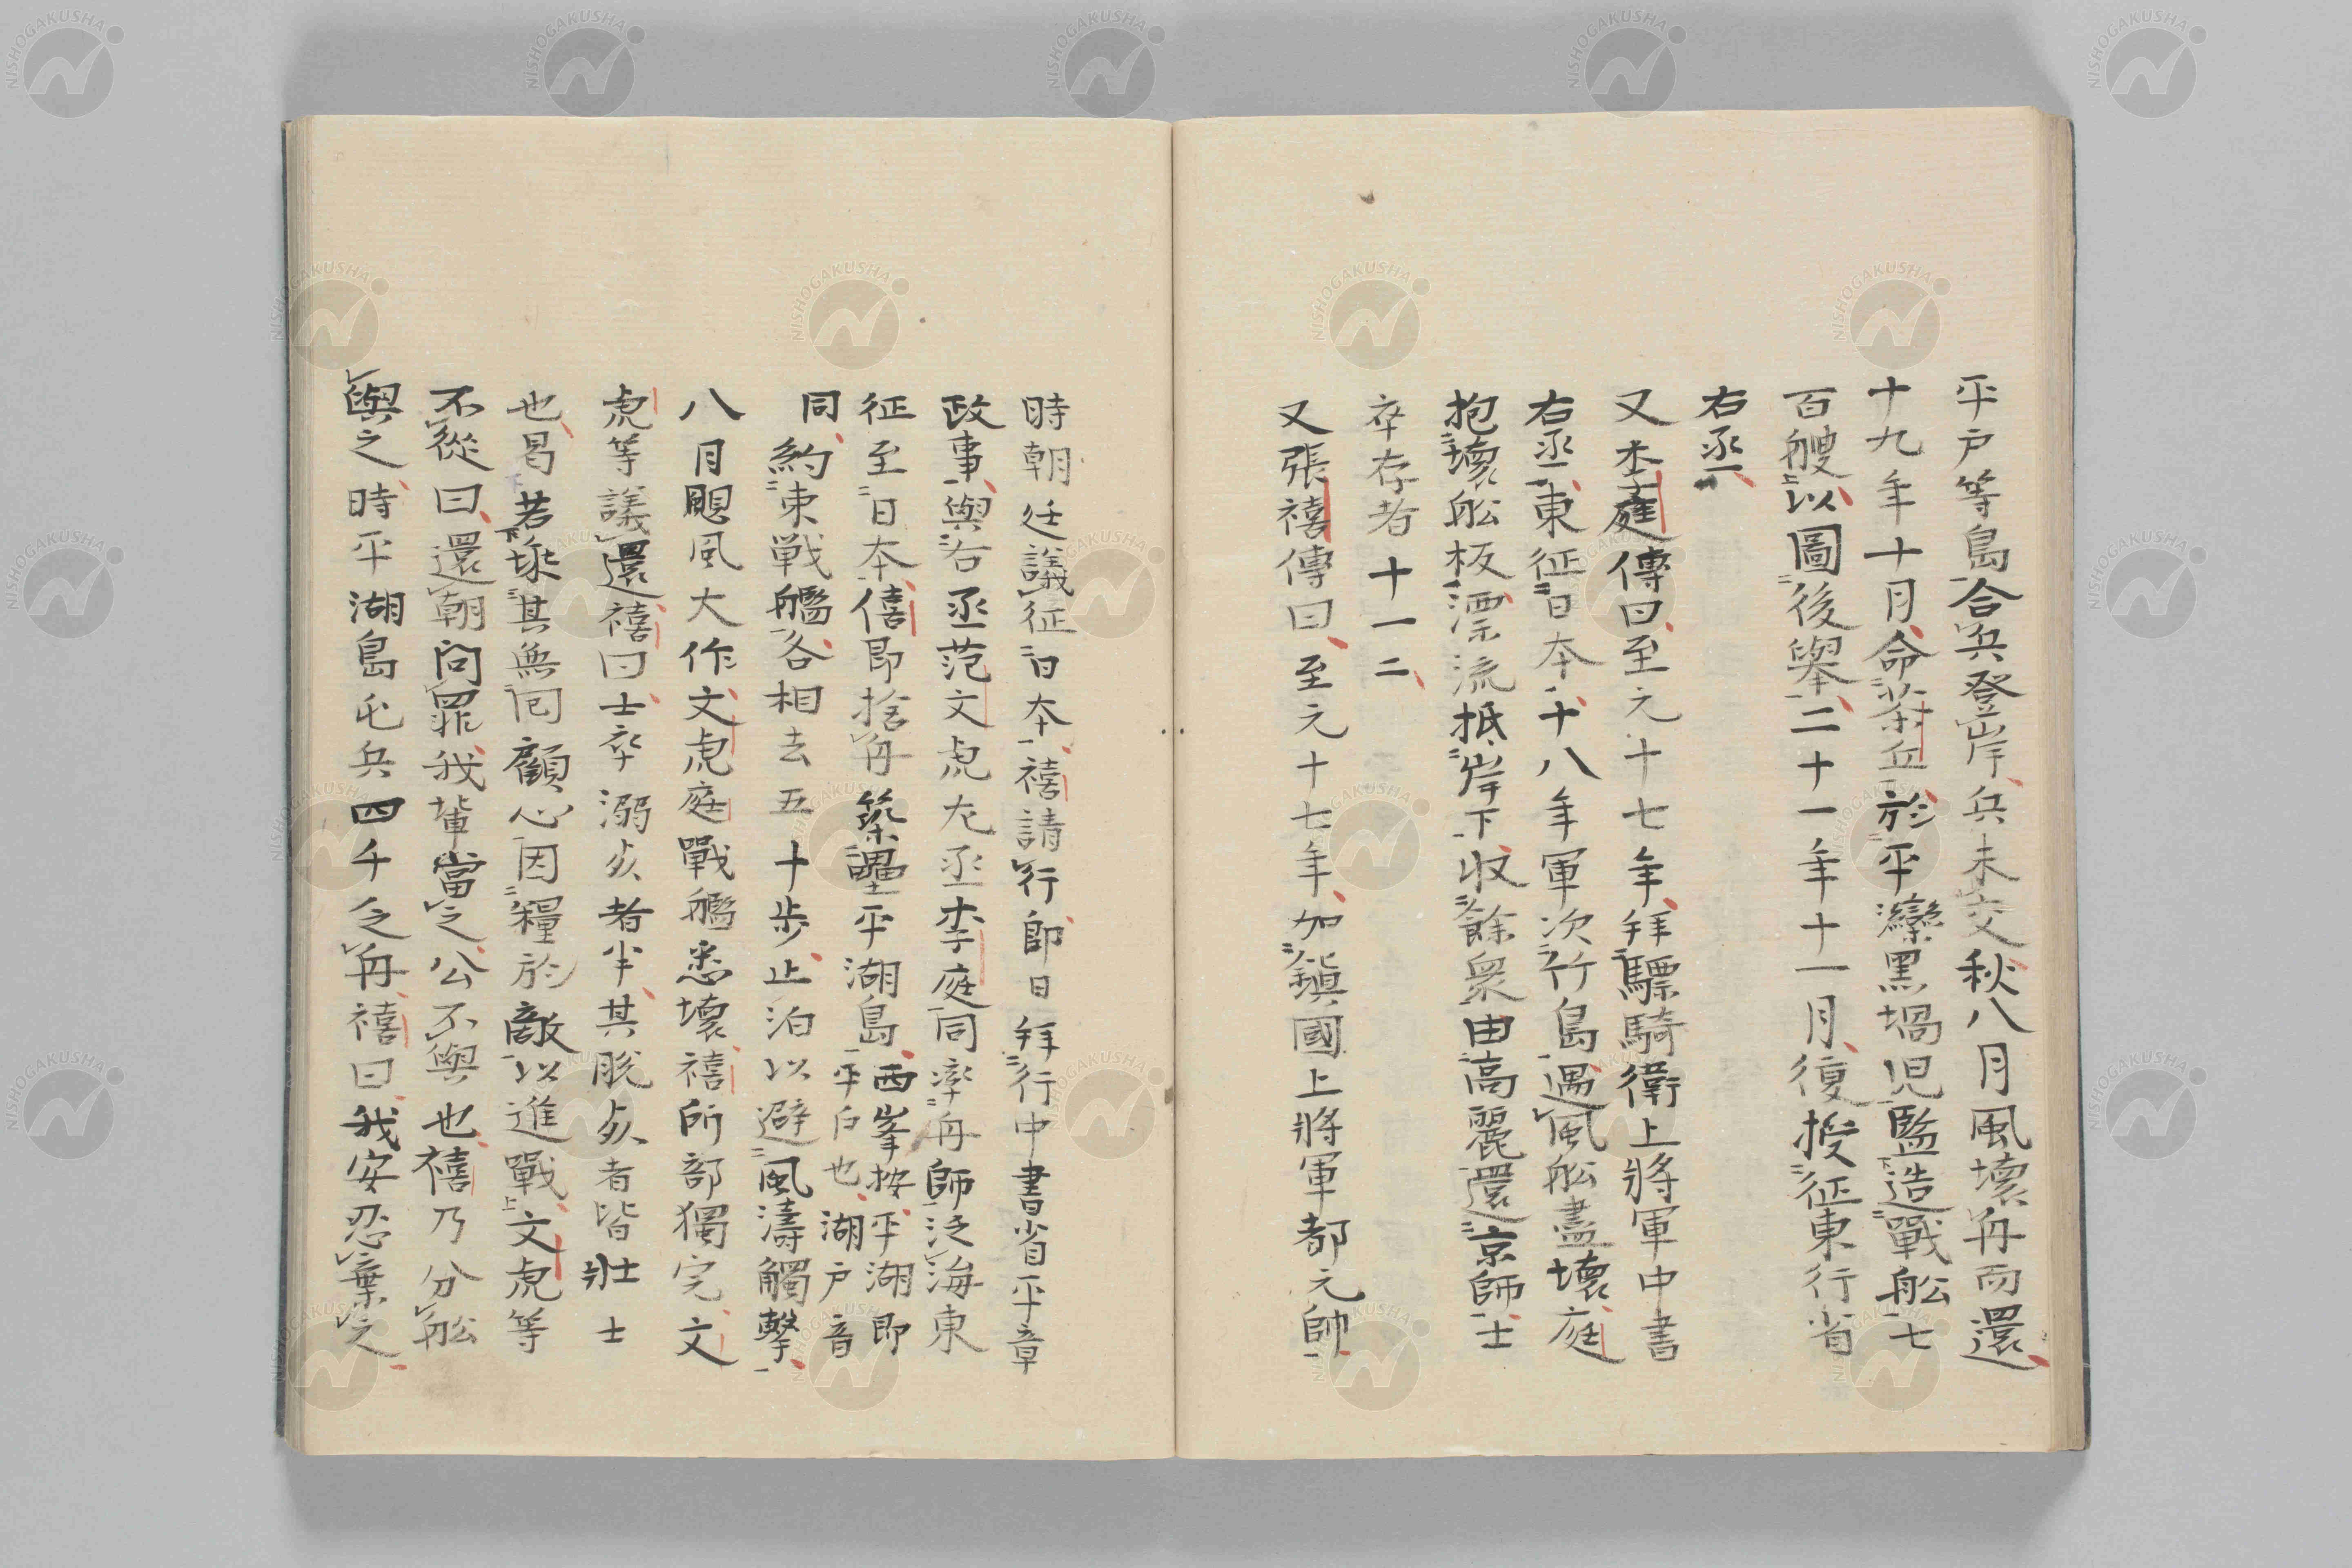 平戸等島合兵登岸兵未交秋八月風壊舟而還
十九年十月命茶丘於平灤黒堝児監造戰舩七
百艘以圖後舉二十一年十一月復授征東行省
右丞
又李庭傳曰至元十七年拜驃騎衛上將軍中書
右丞東征日本十八年軍次竹島遇風舩盡壊庭
抱壊舩板漂流抵岸下収餘衆由高麗還京師士
卒存者十一二
又張禧傳曰至元十七年加鎭國上將軍都元帥
時朝廷議征日本禧請行即日拜行中書省平章
政事與右丞范文虎左丞李庭同率舟師泛海東
征至日本僖即捨舟築壘平湖島西峯按平湖即
平戸也湖戸音
同約束戰艦各相去五十歩止泊以避風濤觸擊
八月颶風大作文虎庭戰艦悉壊禧所部獨完文
虎等議還禧曰士卒溺死者半其脱死者皆壯士
也曷若乗其無囘顧心因糧於敵以進戰文虎等
不從曰還朝問罪我輩當之公不與也禧乃分舩
與之時平湖島屯兵四千乏舟禧曰我安忍棄之
NISHOGAKUSHA